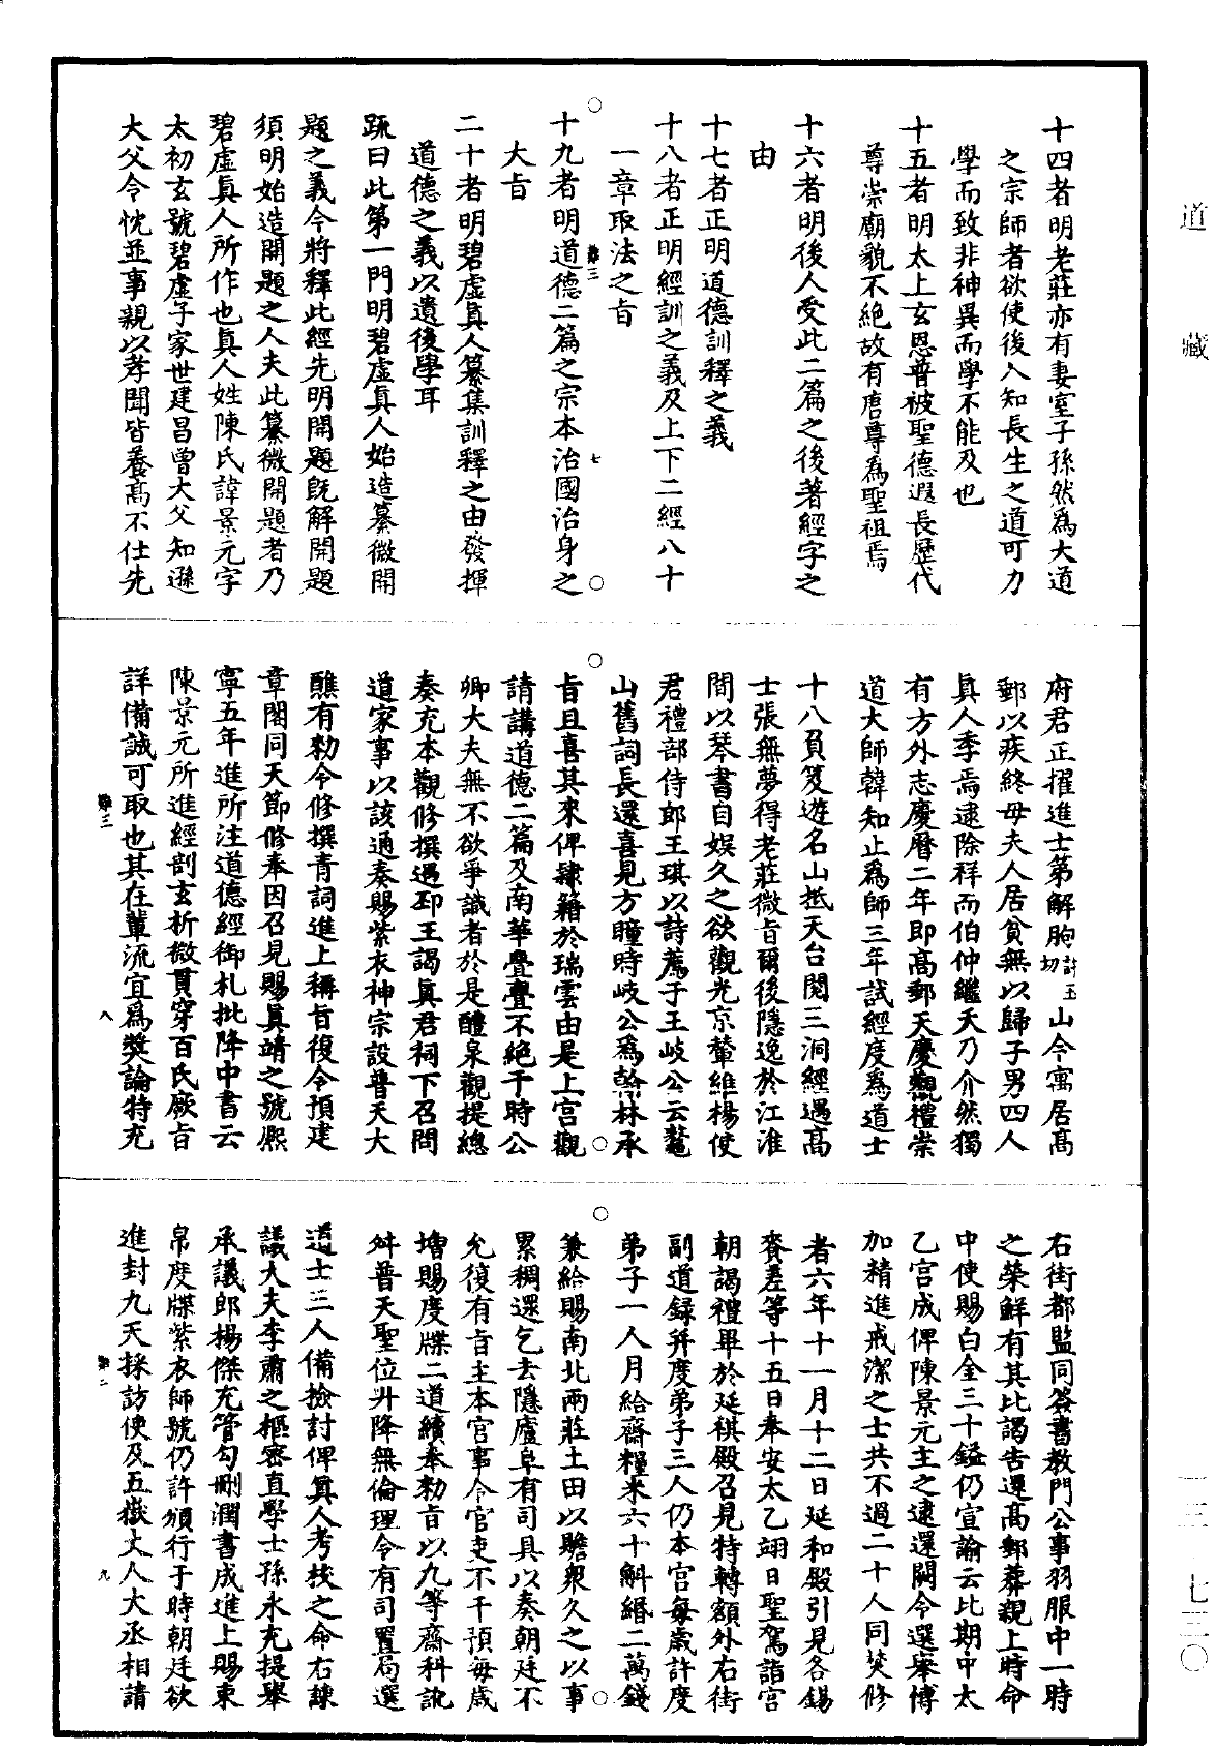 道藏
十四者明老莊亦有妻室子孫然為大道
之宗師者欲使後人知長生之道可力
學而致非神異而學不能及也
十五者明太上玄恩普被聖德遐長歷代
尊崇廟貌不絕故有唐尊為聖祖焉
十六者明後人受此二篇之後著經字之
由
十七者正明道德訓釋之義
十八者正明經訓之義及上下二經八十
一章取法之旨
難三 七
十九者明道德二篇之宗本治國治身之
大旨
二十者明碧虛真人纂集訓釋之由發揮
道德之義以遺後學耳
疏曰此第一門明碧虛真人始造纂微開
題之義今將釋此經先明開題既解開題
須明始造開題之人夫此纂微開題者乃
碧虛真人所作也真人姓陳氏諱景元字
太初玄號碧虛子家世建昌曾大父知遜
大父令忱並事親以孝聞皆養高不仕先
府君正擢進士第解朐許玉切山令寓居高
郵以疾終母夫人居貧無以歸子男四人
真人季焉逮除祥而伯仲繼夭乃介然獨
有方外志慶曆二年即高郵天慶觀禮崇
道大師韓知止為師三年試經度為道士
十八負笈遊名山抵天台閱三洞經遇高
士張無夢得老莊微旨爾後隱逸於江淮
間以琴書自娛久之欲觀光京輦維楊使
君禮部侍郎王琪以詩薦于王岐公云鼇
山舊詞長還喜見方瞳時岐公為翰林承
旨且喜其來俾隸籍於瑞雲由是上宮觀
請講道德二篇及南華亹亹不絕于時公
卿大夫無不欲爭識者於是醴泉觀提總
奏充本觀修撰遇邳王謁真君祠下召問
道家事以該通奏賜紫衣神宗設普天大
醮有勑令修撰青詞進上稱旨復令預建
章閣同天節修奉因召見賜真靖之號熙
寧五年進所注道德經御札批降中書云
陳景元所進經剖玄析微貫穿百氏厥旨
詳備誠可取也其在輩流宜為獎論特充
難三 八
右街都監同簽書教門公事羽服中一時
之榮鮮有其比謁告還高郵葬親上時命
中使賜白金三十鎰仍宣諭云此期中太
乙宮成俾陳景元主之逮還闕令選舉博
加精進戒潔之士共不過二十人同焚修
者六年十一月十二日延和殿引見各錫
賚差等十五日奉安太乙翊日聖駕詣宮
朝謁禮畢於延祺殿召見特轉額外右街
副道録并度弟子三人仍本宮每歲許度
弟子一人月給齋糧米六十斛緡二萬錢
兼給賜南北兩莊土田以贍衆久之以事
累稠還乞去隱廬阜有司具以奏朝廷不
允復有旨主本宮事令官吏不干預每歲
增賜度牒二道續奉勑旨以九等齋科訛
舛普天聖位升降無倫理令有司置局選
道士三人備撿討俾真人考校之命右諫
議大夫李肅之樞密直學士孫永充提舉
承議郎楊傑充管勾刪潤書成進上賜束
帛度牒紫衣師號仍許頒行于時朝廷欲
進封九天採訪使及五嶽丈人大丞相請
難二 九
一三 七三〇